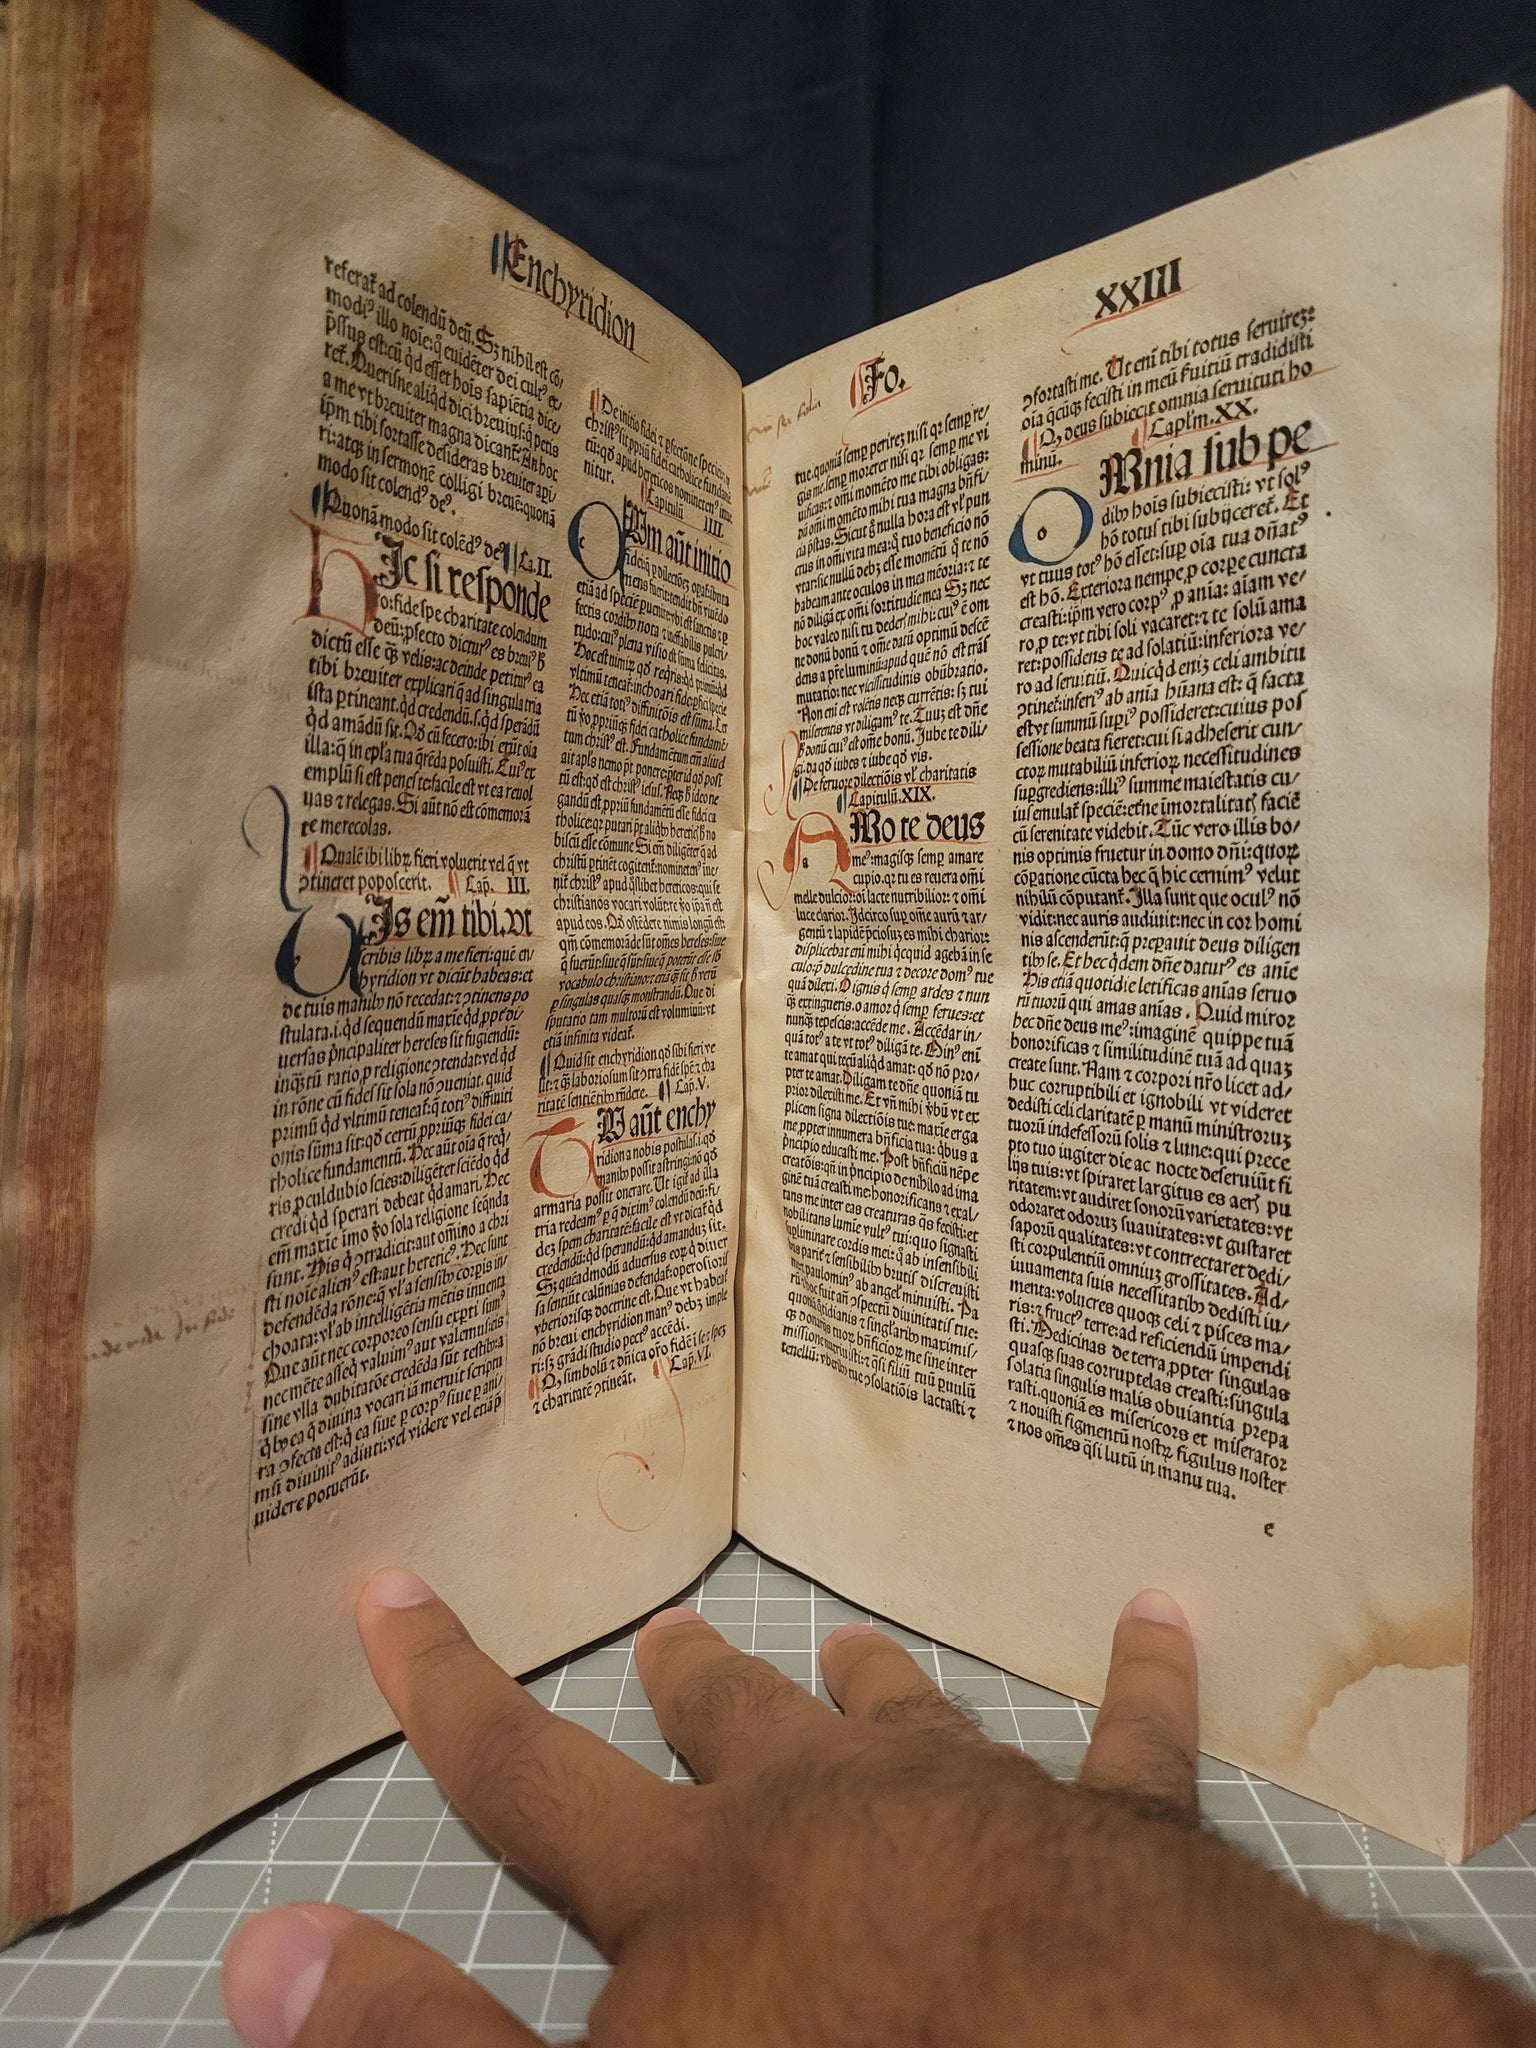 Enchyridion
referat̃ ad colendũ deũ. Sꝫ nihil est cõ/
modiꝰ illo noĩe: q̃ euidẽter dei cultꝰ ex/
p̃ssus est: cũ q̃d esset hoĩs sapiẽtia dice/
ret. Querisne aliq̃d dici breuiusː q̃ petis
a me vt breuiter magna dicant̃: An hoc
ip̃m tibi fortasse desideras breuiter api/
ri: atqꝫ in sermonẽ colligi breuẽ: quonã
modo sit colendꝰ deꝰ.
Quonã modo sit colẽdꝰ deꝰ Ca. II.
Hic si responde
ro: fide spe charitate colendum
deũ: ꝓfecto dicturꝰ es breuiꝰ h̃
dictũ esse q̃ꝫ velis: ac deinde petiturꝰ ea
tibi breuiter explicari q̃ ad singula tria
ista ꝑtineant. q̃d credendũ. s. q̃d sperãdũ
q̃d amãdũ sit. Qd̃ cũ fecero: ibi erũt oĩa
illa: q̃ in ep̃la tua q̃rẽda posuisti. Cuiꝰ ex
emplũ si est penes te: facile est vt ea reuol
uas ⁊ relegas. Si aũt nõ est cõmemorã
te me recolas.
Qualẽ ibi libꝝ fieri voluerit vel q̃ vt
ꝯtineret poposcerit. Cap. III.
Vis em̃ tibi. vt
scribis libꝝ a me fieri: quẽ en/
chyridion vt dicũt habeas: et
de tuis manibꝰ nõ recedat: ⁊ ꝯtinens po
stulata. i. q̃d sequendũ maxie q̃d ꝓpt̃ di/
uersas p̃ncipaliter hereses sit fugiendũ:
inq̃ꝫtũ ratio ꝓ religione ꝯtendat: vel q̃d
in rõne cũ fides sit sola nõ ꝯueniat. quid
primũ q̃d vltimũ teneat̃: q̃ totiꝰ diffiniti
onis sũma sit: qd̃ certũ ꝓpriũqꝫ fidei ca/
tholice fundamentũ. Hec aũt oĩa q̃ req̃/
ris ꝓculdubio scies: diligẽter sciẽdo q̃d
credi q̃d sperari debeat q̃d amari. Hec
em̃ maxie imo ṽo sola religione seq̃nda
sunt. His q̃ ꝯtradicit: aut om̃ino a chri
sti noĩe alienꝰ est: aut hereticꝰ. Hec sunt
defendẽda rõne: q̃ vl̃ a sensibꝰ corpis in/
choata: vl̃ ab intelligẽtia mẽtis inuenta
Que aũt nec corporeo sensu expti sumꝰ
nec mẽte asseq̃ valuimꝰ aut valemus: eis
sine vlla dubitatõe credẽda sũt testibꝰ: a
q̃bꝰ ea q̃ diuina vocari iã meruit scriptu
ra ꝯfecta est: q̃ ea siue ꝑ corpꝰ siue ꝑ ani/
mũ diuinitꝰ adiuti: vel videre vel etiã p̃
uidere potuerũt.
De initio fidei ⁊ ꝑfectõne speciei: ⁊
christꝰ sit ꝓpriũ fidei catholice fundamẽ
tũ: qd̃ apud hereticos nomineten
nitur.
Capitulũ IIII.
Cum aũt initio
fidei: q̃ ꝑ dilectõeꝫ opat̃ ibuta
mens fuerit: tendit bñ viuẽdo
etiã ad speciẽ ꝑuenire: vbi est sanctis ⁊ ꝑ
fectis cordibꝰ nota ⁊ ineffabilis pulcri/
tudo: cuiꝰ plena visio est sũma felicitas.
Hoc est nimiꝝ qd̃ req̃ris: q̃d primũ: q̃d
vltimũ teneat̃: inchoari fide: ꝑfici specie
Hec etiã totiꝰ diffinitõis est sũma. Cer
tũ ṽo ꝓpriũqꝫ fidei catholice fundamẽ/
tum christꝰ est. Fundamẽtum em̃ aliud
ait apl̃s nemo p̃t ponere: p̃ter id qd̃ posi
tũ est: qd̃ est christꝰ iesus. Neqꝫ h̃ ideo ne
gandũ est ꝓpriũ fundamẽtũ esse fidei ca
tholice: qꝛ putari p̃t aliq̃bꝰ hereticꝭ h̃ no
biscũ esse cõmune Si em̃ diligẽter q̃ ad
christũ ꝑtinẽt cogitent̃: nominetenꝰ iue/
nit̃ christꝰ apud q̃slibet hereticos: qui se
christianos vocari volũt: re ṽo ip̃a nõ est
apud eos. Qd̃ ostẽdere nimis longũ est:
qm̃ cõmemorãde sũt om̃es hereses: siue
q̃ fuerũt: siue q̃ sũt: siue q̃ poterũt esse sb̃
vocabulo christiano: ⁊ etiã q̃ꝫ sit h̃ verũ
ꝑ singulas quasqꝫ monstrandũ. Que di
sputatio tam multorũ est voluminũ: vt
etiã infinita videat̃.
Quid sit enchyridion qd̃ sibi fieri ve
lit: ⁊ q̃ꝫ laboriosum sit ꝯtra fidẽ spẽ ⁊ cha
ritatẽ sentiẽtibꝰ rñdere. Cap. V.
Tu aũt enchy
ridion a nobis postulas. i. qd̃
manibꝰ possit astringi: nõ qd̃
armaria possit onerare. Ut igit̃ ad illa
tria redeamꝰ ꝑ q̃ diximꝰ colendũ deũ: fi/
deꝫ spem charitatẽ: facile est vt dicat̃ q̃d
credendũ: q̃d sperandũ: q̃d amanduꝫ sit.
Sꝫ queadmodũ aduersus eoꝝ q̃ diuer
sa sentiũt calũnias defendat̃: operosioris
vberiorisqꝫ doctrine est. Que vt habeat̃
nõ breui enchyridion manꝰ debꝫ imple
ri: sꝫ grãdi studio pectꝰ accẽdi.
Q, simbolũ ⁊ dñica oro fidẽ ⁊ speꝫ
⁊ charitatẽ ꝯtineãt. Cap. VI.
Fo. XXIII
tue. quoniã semp perireꝫ nisi qꝛ semp re/
gis me: semp morerer nisi qꝛ semp me vi
uificas: ⁊ om̃i momẽto me tibi obligas:
dũ om̃i momẽto mihi tua magna bñfi/
cia p̃stas. Sicut g̃ nulla hora est vl̃ pun
ctus in om̃i vita mea: q̃ tuo beneficio nõ
vtar: sic nullũ debꝫ esse momẽtũ q̃ te nõ
habeam ante oculos in mea mẽoria: ⁊ te
nõ diligã ex om̃i fortitudie mea Sꝫ nec
hoc valeo nisi tu dederꝭ mihi: cuiꝰ ẽ om
ne donũ bonũ ⁊ om̃e datũ optimũ descẽ
dens a p̃re luminũ: apud quẽ nõ est trãs
mutatio: nec vicissitudinis obũbratio.
Non em̃ est volẽtis neqꝫ currẽtis: sꝫ tui
miserentis vt diligamꝰ te. Tuuꝫ est dñe
h̃ donũ cuiꝰ est om̃e bonũ. Jube te dili/
gi. da qd̃ iubes ⁊ iube qd̃ vis.
De feruore dilectiõis vl̃ charitatis
Capitulũ. XIX.
AMo te deus
meꝰ: magisqꝫ semp amare
cupio. qꝛ tu es reuera om̃i
melle dulcior: oĩ lacte nutribilior: ⁊ om̃i
luce clarior. Idcirco sup om̃e aurũ ⁊ ar/
gentũ ⁊ lapidẽ p̃ciosuꝫ es mihi charior:
displicebat em̃ mihi q̃cquid agebã in se
culo: p̃ dulcedine tua ⁊ decore domꝰ tue
quã dilexi. O ignis q̃ semp ardes ⁊ nun
q̃ꝫ extingueris. o amor q̃ semp ferues: et
nunq̃ꝫ tepescis: accẽde me. Accẽdar in/
quã totꝰ a te vt totꝰ diligã te. Minꝰ em̃
te amat qui tecũ aliq̃d amat: qd̃ nõ pro/
pter te amat. Diligam te dñe quoniã tu
prior dilexisti me. Et vñ mihi ṽbũ vt ex
plicem signa dilectiõis tue: maxie erga
me, ꝓpter innumera bñficia tua: q̃bus a
p̃ncipio educasti me. Post bñficiũ nẽpe
creatõis: qñ in p̃ncipio de nihilo ad ima
ginẽ tuã creasti me: honorificans ⁊ exal/
tans me inter eas creaturas q̃s fecisti: et
nobilitans lumie vultꝰ tui: quo signasti
supliminare cordis mei: q̃ ab insensibili
bus parit̃ ⁊ sensibilibꝰ brutis discreuisti
me: paulominꝰ ab angelꝭ minuisti. Pa
rũ hoc fuit añ ꝯspectũ diuinitatis tue:
quoniã q̃tidianis ⁊ singl̃aribꝰ maximis/
qꝫ donariis tuoꝝ bñficioꝝ me sine inter
missione enutriuisti: ⁊ q̃si filiũ tuũ ꝑuulũ
tenellũ: vberibꝰ tue ꝯsolatiõis lactasti ⁊
ꝯfortasti me. Ut em̃ tibi totus seruireꝫ:
oĩa q̃cũqꝫ fecisti in meũ ẜuitiũ tradidisti
Q, deus subiecit omnia seruituti ho
minũ. Capl̃m. XX.
OMnia sub pe
dibꝰ hoĩs subiecisti: vt solꝰ
hõ totus tibi subijceret̃. Et
vt tuus totꝰ hõ esset: sup oĩa tua dñatꝰ
est hõ. Exteriora nempe ꝓ corpe cuncta
creasti: ip̃m vero corpꝰ ꝓ anĩa: aĩam ve/
ro ꝓ te: vt tibi soli vacaret: ⁊ te solũ ama
ret: possidens te ad solatiũ: inferiora ve/
ro ad seruitiũ. Quicq̃d eniꝫ celi ambitu
ꝯtinet̃: inferiꝰ ab anĩa hũana est: q̃ facta
est vt summũ supiꝰ possideret: cuius pos
sessione beata fieret: cui si adheserit cun/
ctoꝝ mutabiliũ inferioꝝ necessitudines
supgrediens: illiꝰ summe maiestatis cu/
ius emulat̃ speciẽ: etne imortalitatꝭ faciẽ
cũ serenitate videbit. Tũc vero illis bo/
nis optimis fruetur in domo dñi: quoꝝ
cõpatione cũcta hec q̃ hic cernimꝰ velut
nihilũ cõputant̃. Illa sunt que oculꝰ nõ
vidit: nec auris audiuit: nec in cor homi
nis ascenderũt: q̃ prepauit deus diligen
tibꝰ se. Et hec q̃dem dñe daturꝰ es anĩe
His etiã quotidie letificas anĩas seruo
rũ tuorũ qui amas anĩas. Quid miror
hec dñe deus meꝰ: imaginẽ quippe tuã
honorificas ⁊ similitudinẽ tuã ad quaꝫ
create sunt. Nam ⁊ corpori nr̃o licet ad/
huc corruptibili et ignobili vt videret
dedisti celi claritatẽ ꝑ manũ ministroruꝫ
tuorũ indefessorũ solis ⁊ lune: qui prece
pto tuo iugiter die ac nocte deseruiũt fi
lijs tuis: vt spiraret largitus es aerꝭ pu
ritatem: vt audiret sonorũ varietates: vt
odoraret odoruꝫ suauitates: vt gustaret
saporũ qualitates: vt contrectaret dedi/
sti corpulentiũ omniuꝫ grossitates. Ad/
iuuamenta suis necessitatibꝰ dedisti iu/
menta: volucres quoqꝫ celi ⁊ pisces ma/
ris: ⁊ fructꝰ terre: ad reficiendũ impendi
sti. Medicinas de terra, ꝓpter singulas
quasqꝫ suas corruptelas creasti: singula
solatia singulis malis obuiantia prepa
rasti. quoniã es misericors et miserator
⁊ nouisti figmentũ nostꝝ figulus noster
⁊ nos om̃es q̃si lutũ in manu tua.
e